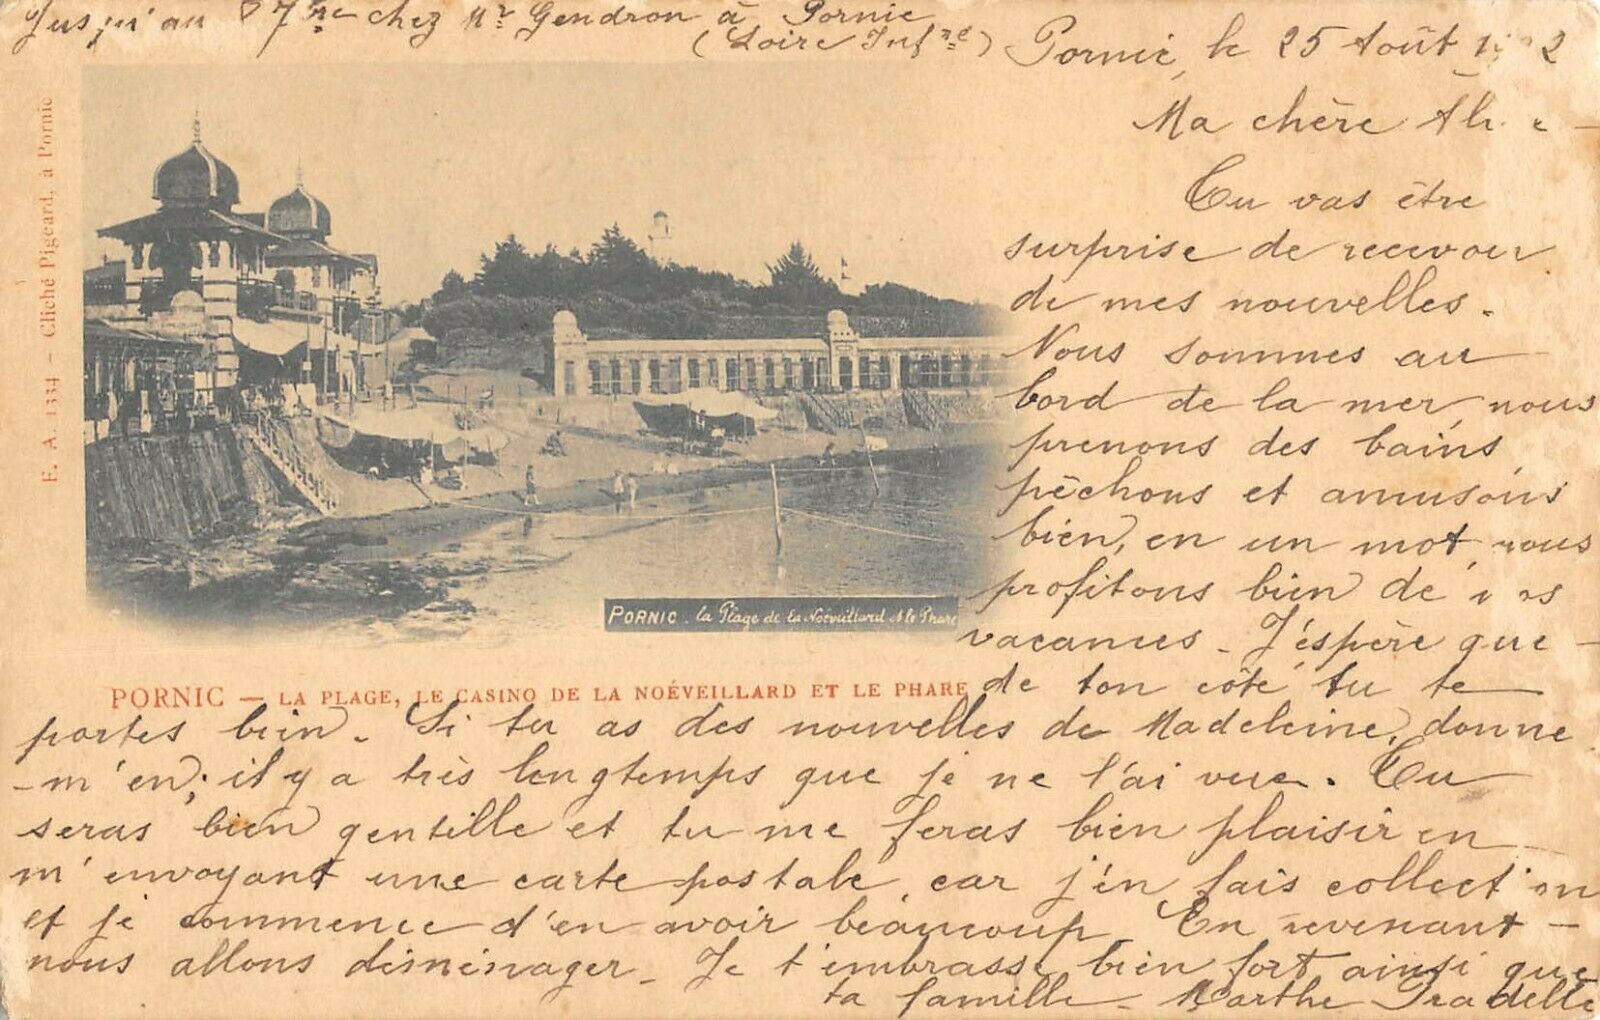 Jusqu'au 7bre chez Mr Gendron à Pornic
(Loire Infre)
Pornic, le 25 Août
Ma chère
Tu vas être
surprise de recevoir
de mes nouvelles.
Nous sommes au
bord de la mer, nous
prenons des bains,
pêchons et amusons
bien, en un mot, nous
profitons bien de nos
vacances. J'éspère que
de ton côté tu te
portes bien. Si tu as des nouvelles de Madeleine, donne
-m'en; il y a très longtemps que je ne l'ai vue. Tu
seras bien gentille et tu me feras bien plaisir en
m'envoyant une carte postale, car j'en fais collection
et je commence d'en avoir beaucoup. En revenant
nous allons déménager. Je t'embrasse bien fort ainsi que
ta famille. Marthe
E. A. 1334 – Cliché Pigeard, à Pornic
PORNIC. la Plage de la Noëveillard & le Phare
PORNIC — LA PLAGE, LE CASINO DE LA NOÉVEILLARD ET LE PHARE